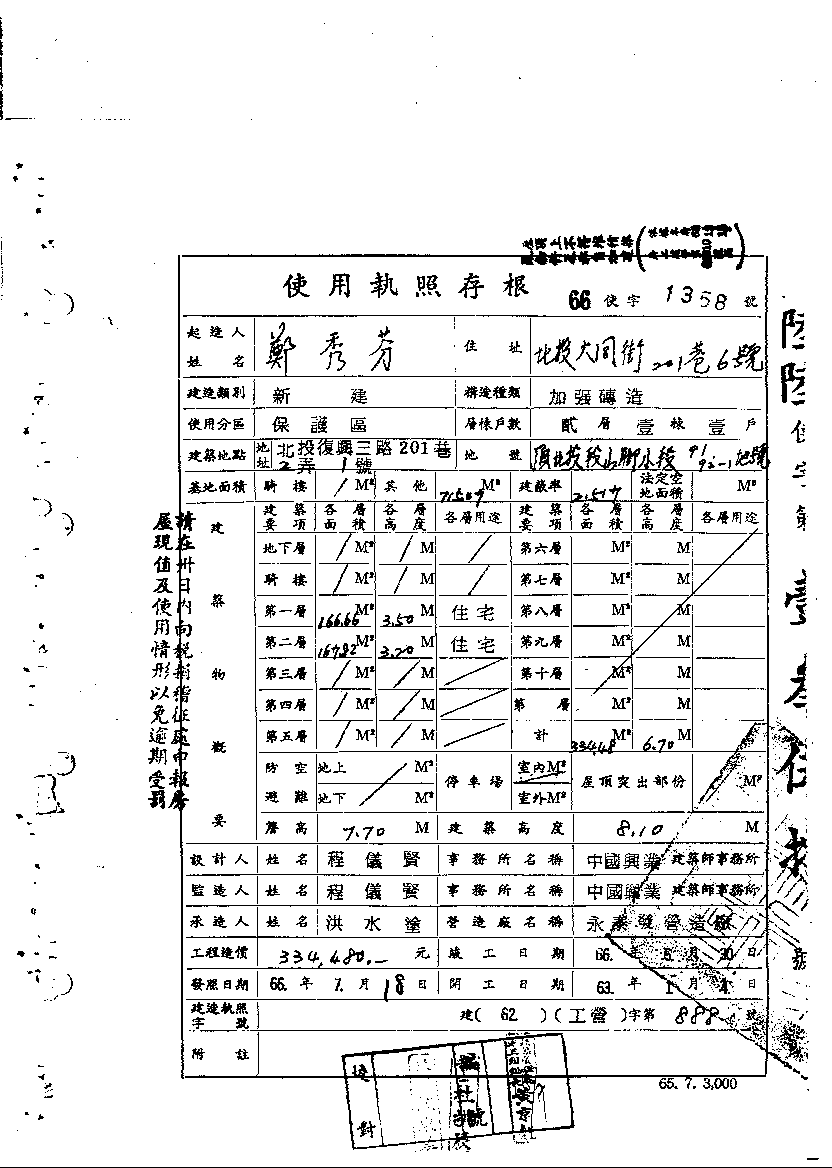 使用執照存根 66 使字 1358 號
起造人姓名 鄭秀芬 住址 北投大同街201巷6號
建造類別 新建 構造種類 加强磚造
使用分區 保護區 層棟戶數 貳層壹棟壹戶
建築地點 地址 北投復興三路201巷2弄1號 地號
基地面積 騎樓 / M² 其他 M² 建蔽率 法定空地面積 M²
建築物概要 建築要項 各層面積 各層高度 各層用途 建築要項 各層面積 各層高度 各層用途
地下層 / M² / M / 第六層 M² M
騎樓 / M² / M / 第七層 M² M
第一層 166.66 M² 3.50 M 住宅 第八層 M² M
第二層 167.82 M² 3.20 M 住宅 第九層 M² M
第三層 / M² / M 第十層 M² M
第四層 / M² / M 第 層 M² M
第五層 / M² / M 計 334.48 M² 6.70 M
防空避難 地上 M² 停車場 室內M² 屋頂突出部份 M²
地下 M² 室外M²
簷高 7.70 M 建築高度 8.10 M
設計人 姓名 程儀賢 事務所名稱 中國興業建築師事務所
監造人 姓名 程儀賢 事務所名稱 中國興業建築師事務所
承造人 姓名 洪水塗 營造廠名稱 永泰發營造廠
工程造價 334,480.- 元 竣工日期 66.年 6 月 30 日
發照日期 66.年 7.月 18 日 開工日期 63.年 1 月 4 日
建造執照字號 建(62)(工營)字第 888 號
附註
65.7.3,000
請在卅日內向稅捐稽征處申報房
屋現值及使用情形以免逾期受罰
陸陸使字第
號
校對